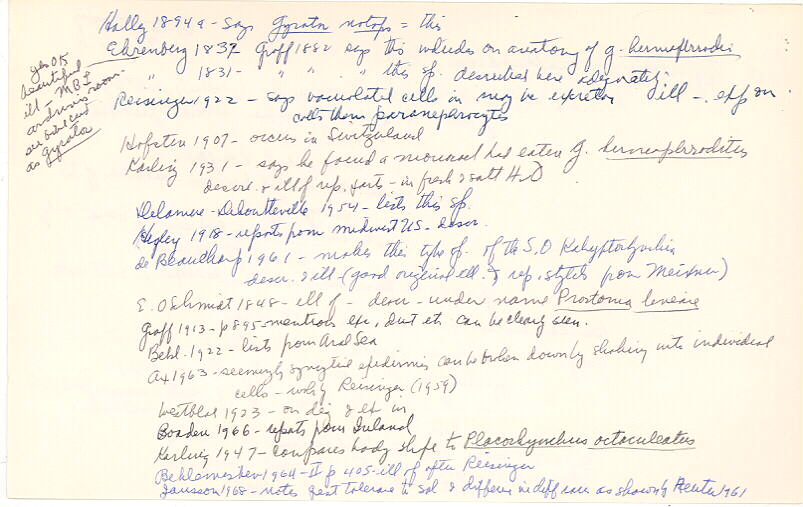 Hallez 1894a - says Gyrator notops = this
Ehrenberg 1837 Graff 1882 says this includes on anatomy of G. hermaphrodit
" 1831 - " " " this sp. described here adequately
yes OK
beautiful
ill - MBL
archives room
see bibl card
as Gyrator
Reisinger 1922 - says vacuolated cells in may be excretory ill - exp on
calls them paranephrocytes
Hofsten 1907 - occurs in Switzerland
Karling 1931 - says he found a monocelis had eaten G. hermaphroditus
descr. & ill of rep. parts - in fresh & salt H2O
Delamare-Deboutteville 1954 - lists this sp.
Hegley 1918 - reports from midwest US - descr.
de Beauchamp 1961 - makes this type of. of the S.O Kalyptorhynchia
descr. & ill - (good original ill. of rep. stylets from Meixner)
E. O Schmidt 1848 - ill of - descr - under name Prostoma lineare
Graff 1913 - p 895 - mentions exc, duct etc can be clearly seen.
Bekl. 1922 - lists from Aral Sea
Ax 1963 - seemingly syncytial epidermis can be broken down by shaking into individual
cells - Reisinger (1959)
Westblad 1923 - on dig & ex in
Boaden 1966 - repots from Ireland
Karling 1947 - compares body shape to Placorhynchus octaculeatus
Beklemischev 1964 - II p 405 - ill of after Reisinger
Jansson 1968 - notes great tolerance to sal & differs in diff races as shown by Reuter 1961